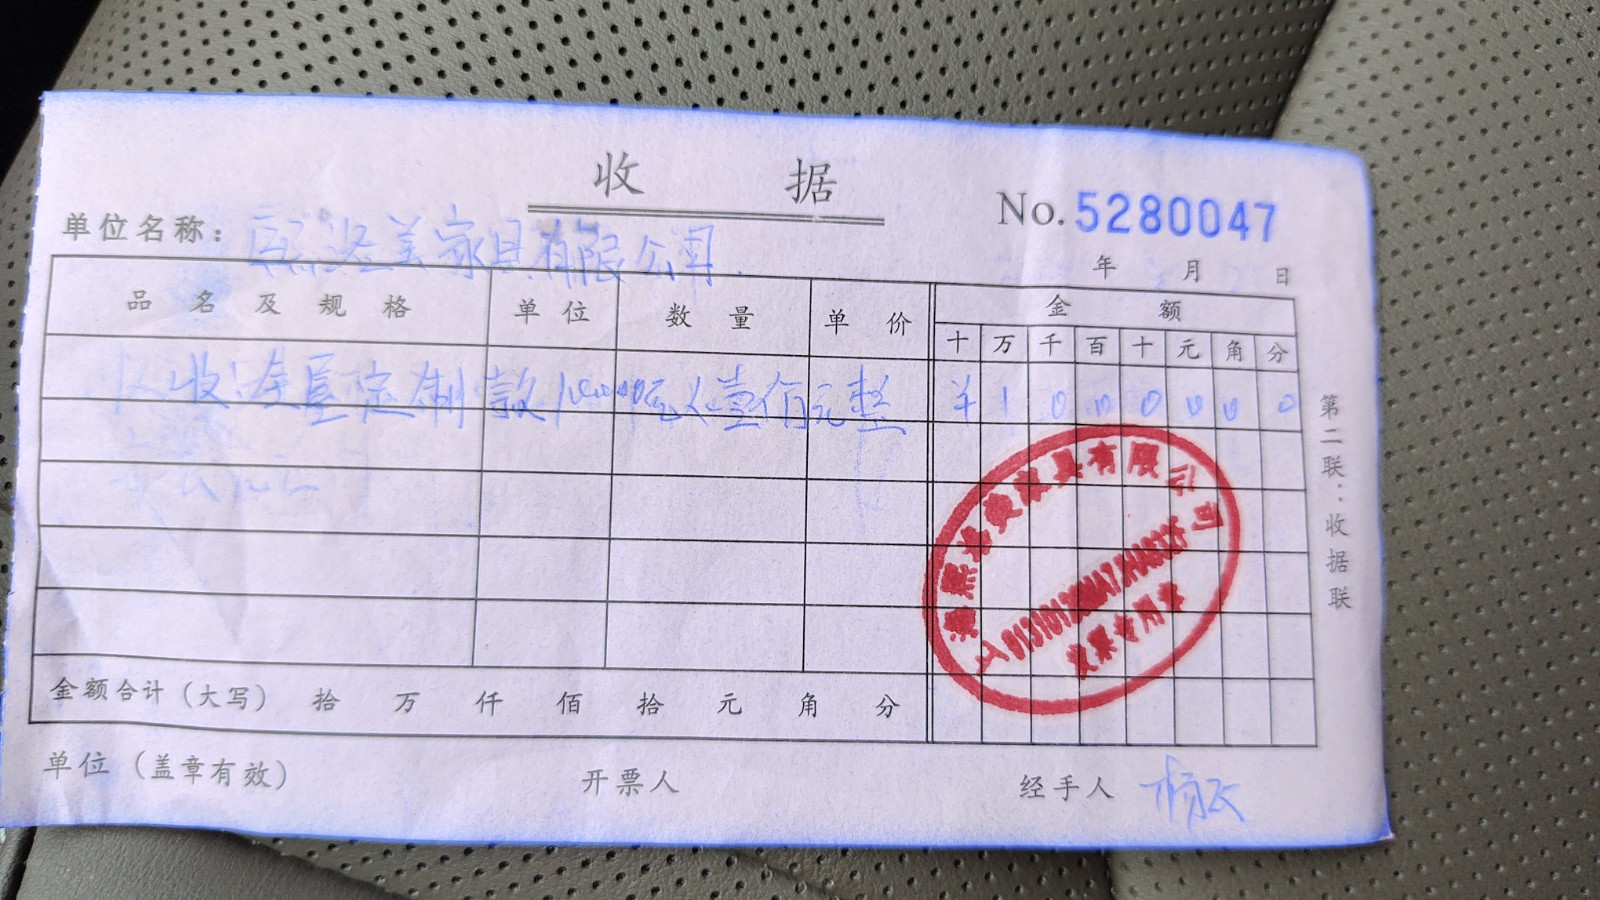 收 据
No. 5280047
单位名称： 美家具有限公司
年 月 日
品名及规格 单位 数量 单价 金额
十 万 千 百 十 元 角 分
收：全屋定制款 壹佰元整 ¥ 1 0 0 0 0 0 0
金额合计（大写） 拾 万 仟 佰 拾 元 角 分
单位（盖章有效） 开票人 经手人 杨
第二联：收据联
家具有限公司